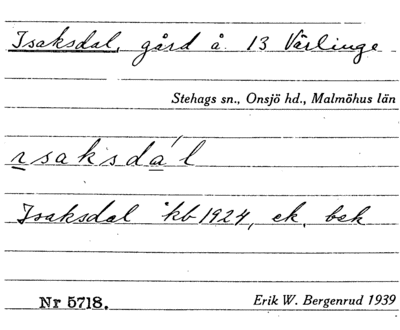 Isaksdal, gård å 13 Värlinge
Stehags sn., Onsjö hd., Malmöhus län
ısaksdál
Isaksdal kb 1924, ek, bsk
Nr 5718. Erik W. Bergenrud 1939